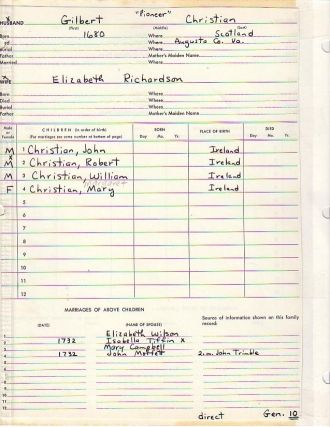 "Pioneer"
HUSBAND Gilbert Christian
(First) (Middle) (Last)
Born 1680 Where Scotland
Died Where Augusta Co. Va.
Burial Where
Father Mother's Maiden Name
Married Where
WIFE Elizabeth Richardson
Born Where
Died Where
Burial Where
Father Mother's Maiden Name
Male or Female CHILDREN (In order of birth) BORN PLACE OF BIRTH DIED
(For marriages see same number at bottom of page) Day Mo. Yr. Day Mo. Yr.
M 1 Christian, John Ireland
X
M 2 Christian, Robert Ireland
M 3 Christian, William Ireland
F 4 Christian, Mary Ireland
5
6
7
8
9
10
11
12
MARRIAGES OF ABOVE CHILDREN
(DATE) (NAME OF SPOUSE) Source of information shown on this family record:
1. Elizabeth Wilson
2. 1732 Isabella Tiffin X
3. Mary Campbell
4. 1732 John Moffet 2.m. John Trimble
5.
6.
7.
8.
9.
10.
11.
12.
direct Gen. 10